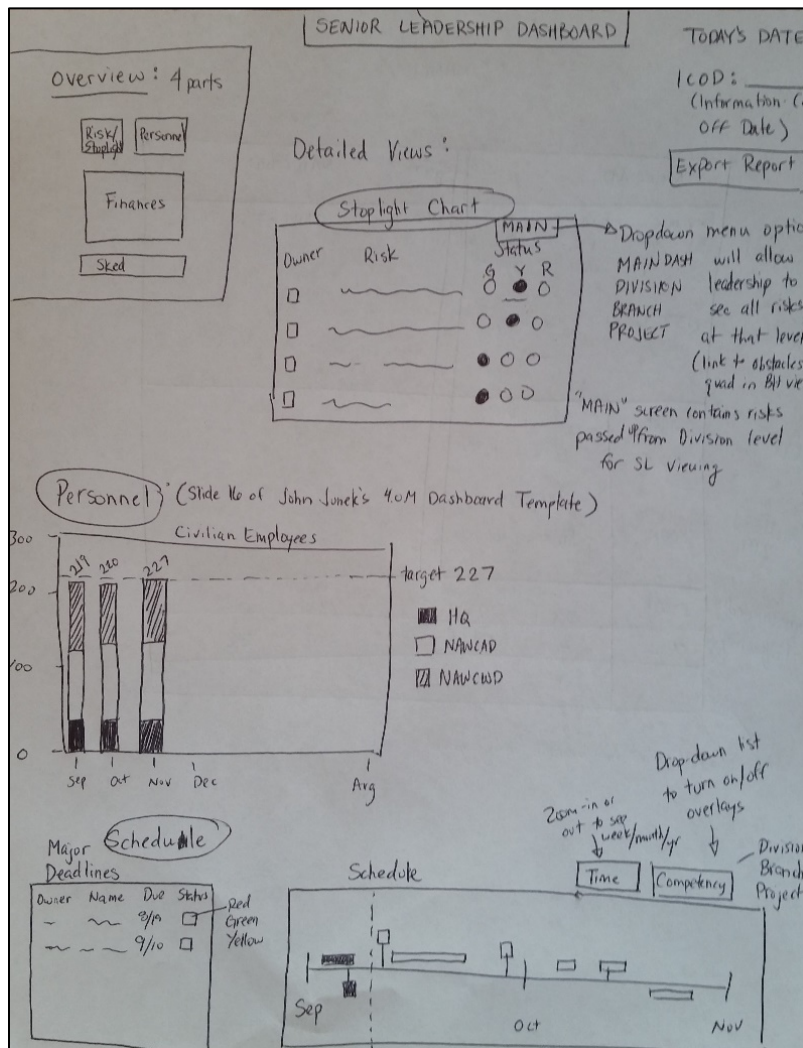 SENIOR LEADERSHIP DASHBOARD
TODAY'S DATE
ICOD:
(Information
OFF Date)
Export Report
Overview: 4 parts
Risk/
Stoplight
Personnel
Finances
Sked
Detailed Views:
Stoplight Chart
MAIN
Owner Risk Status
G Y R
Dropdown menu
MAIN DASH will allow
DIVISION leadership to
BRANCH see all risks
PROJECT at that level
(link to obstacles
quad in
"MAIN" screen contains risks
passed up from Division level
for SL viewing
Personnel (Slide 16 of John Junek's 4.0M Dashboard Template)
Civilian Employees
300
200
100
0
219 220 227
target 227
HQ
NAWCAD
NAWCWD
Sep Oct Nov Dec Aug
Schedule
Major
Deadlines
Owner Name Due Status
8/19
9/10
Red
Green
Yellow
Drop-down list
to turn on/off
overlays
Zoom-in or
out to see
week/month/yr
Schedule
Time
Competency
Division
Branch
Project
Sep Oct Nov